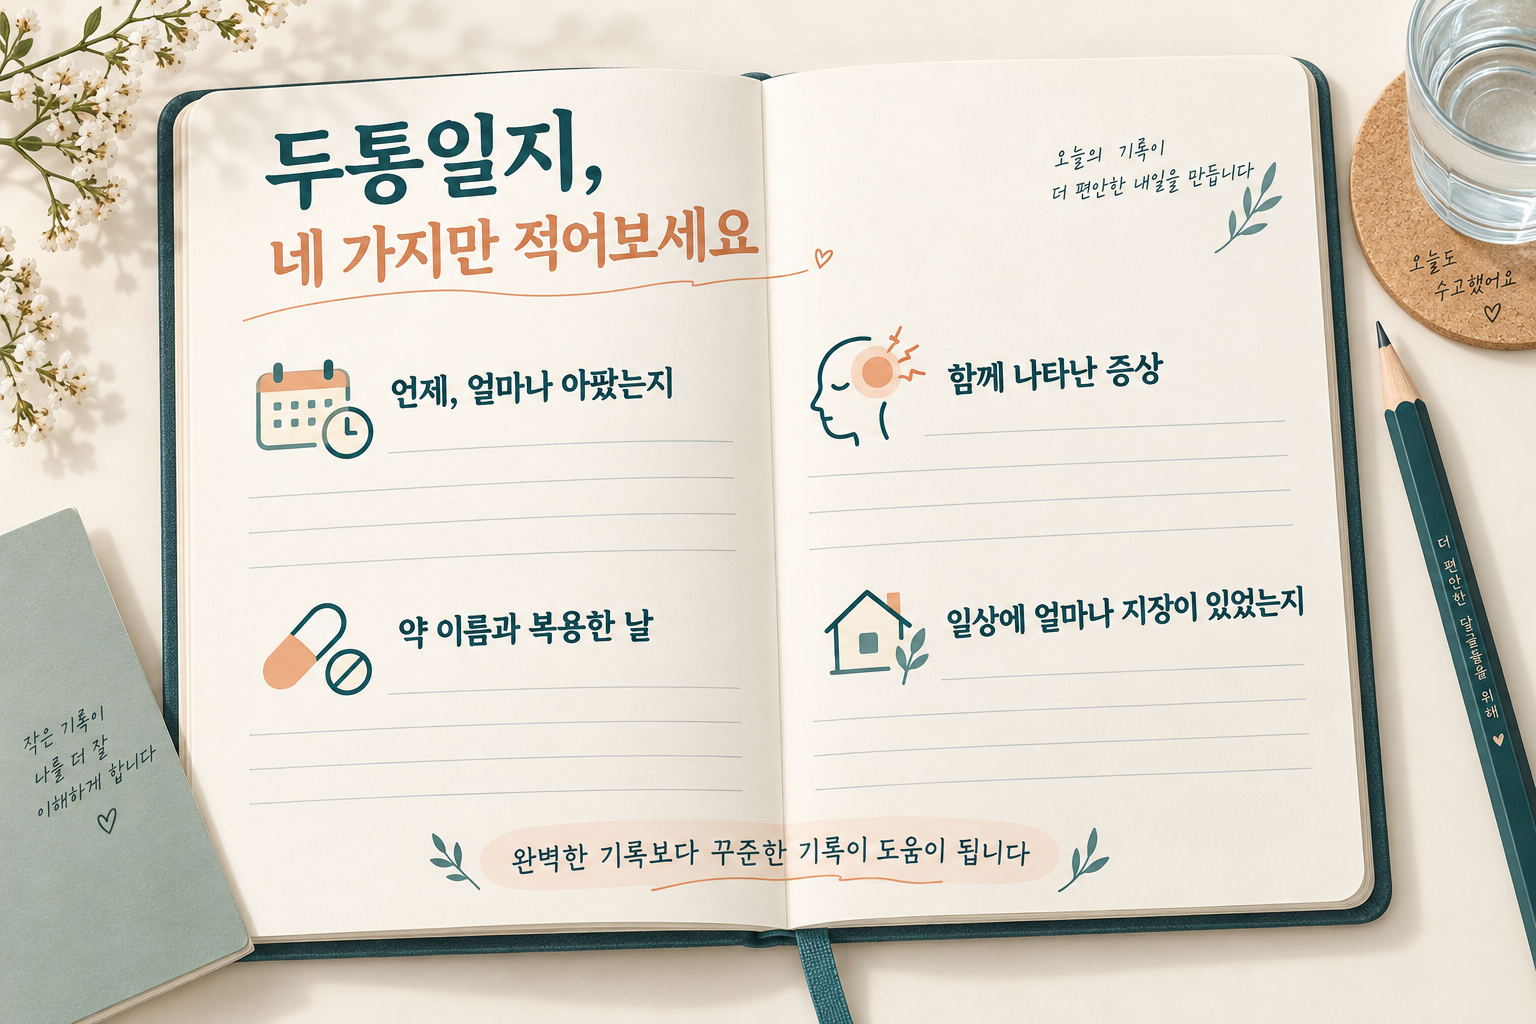 두통일지,
네 가지만 적어보세요
오늘의 기록이
더 편안한 내일을 만듭니다
언제, 얼마나 아팠는지
함께 나타난 증상
약 이름과 복용한 날
일상에 얼마나 지장이 있었는지
완벽한 기록보다 꾸준한 기록이 도움이 됩니다
오늘도
수고했어요
작은 기록이
나를 더 잘
이해하게 합니다
더 편안한
위해